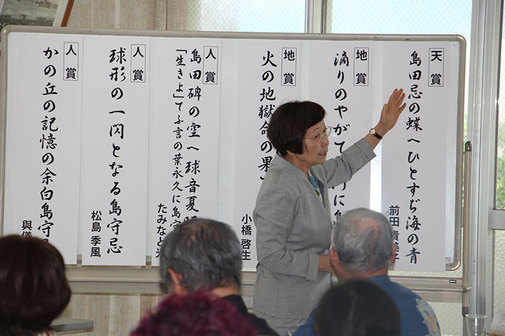 天賞
島田忌の蝶へひとすぢ海の青
前田
地賞
滴りのやがて
地賞
火の地獄命の果
小橋 啓生
人賞
島田碑の空へ球音夏
「生きよ」てふ言の葉永久に島守
たみなと
人賞
球形の一閃となる島守忌
松島 季風
人賞
かの丘の記憶の余白島守忌